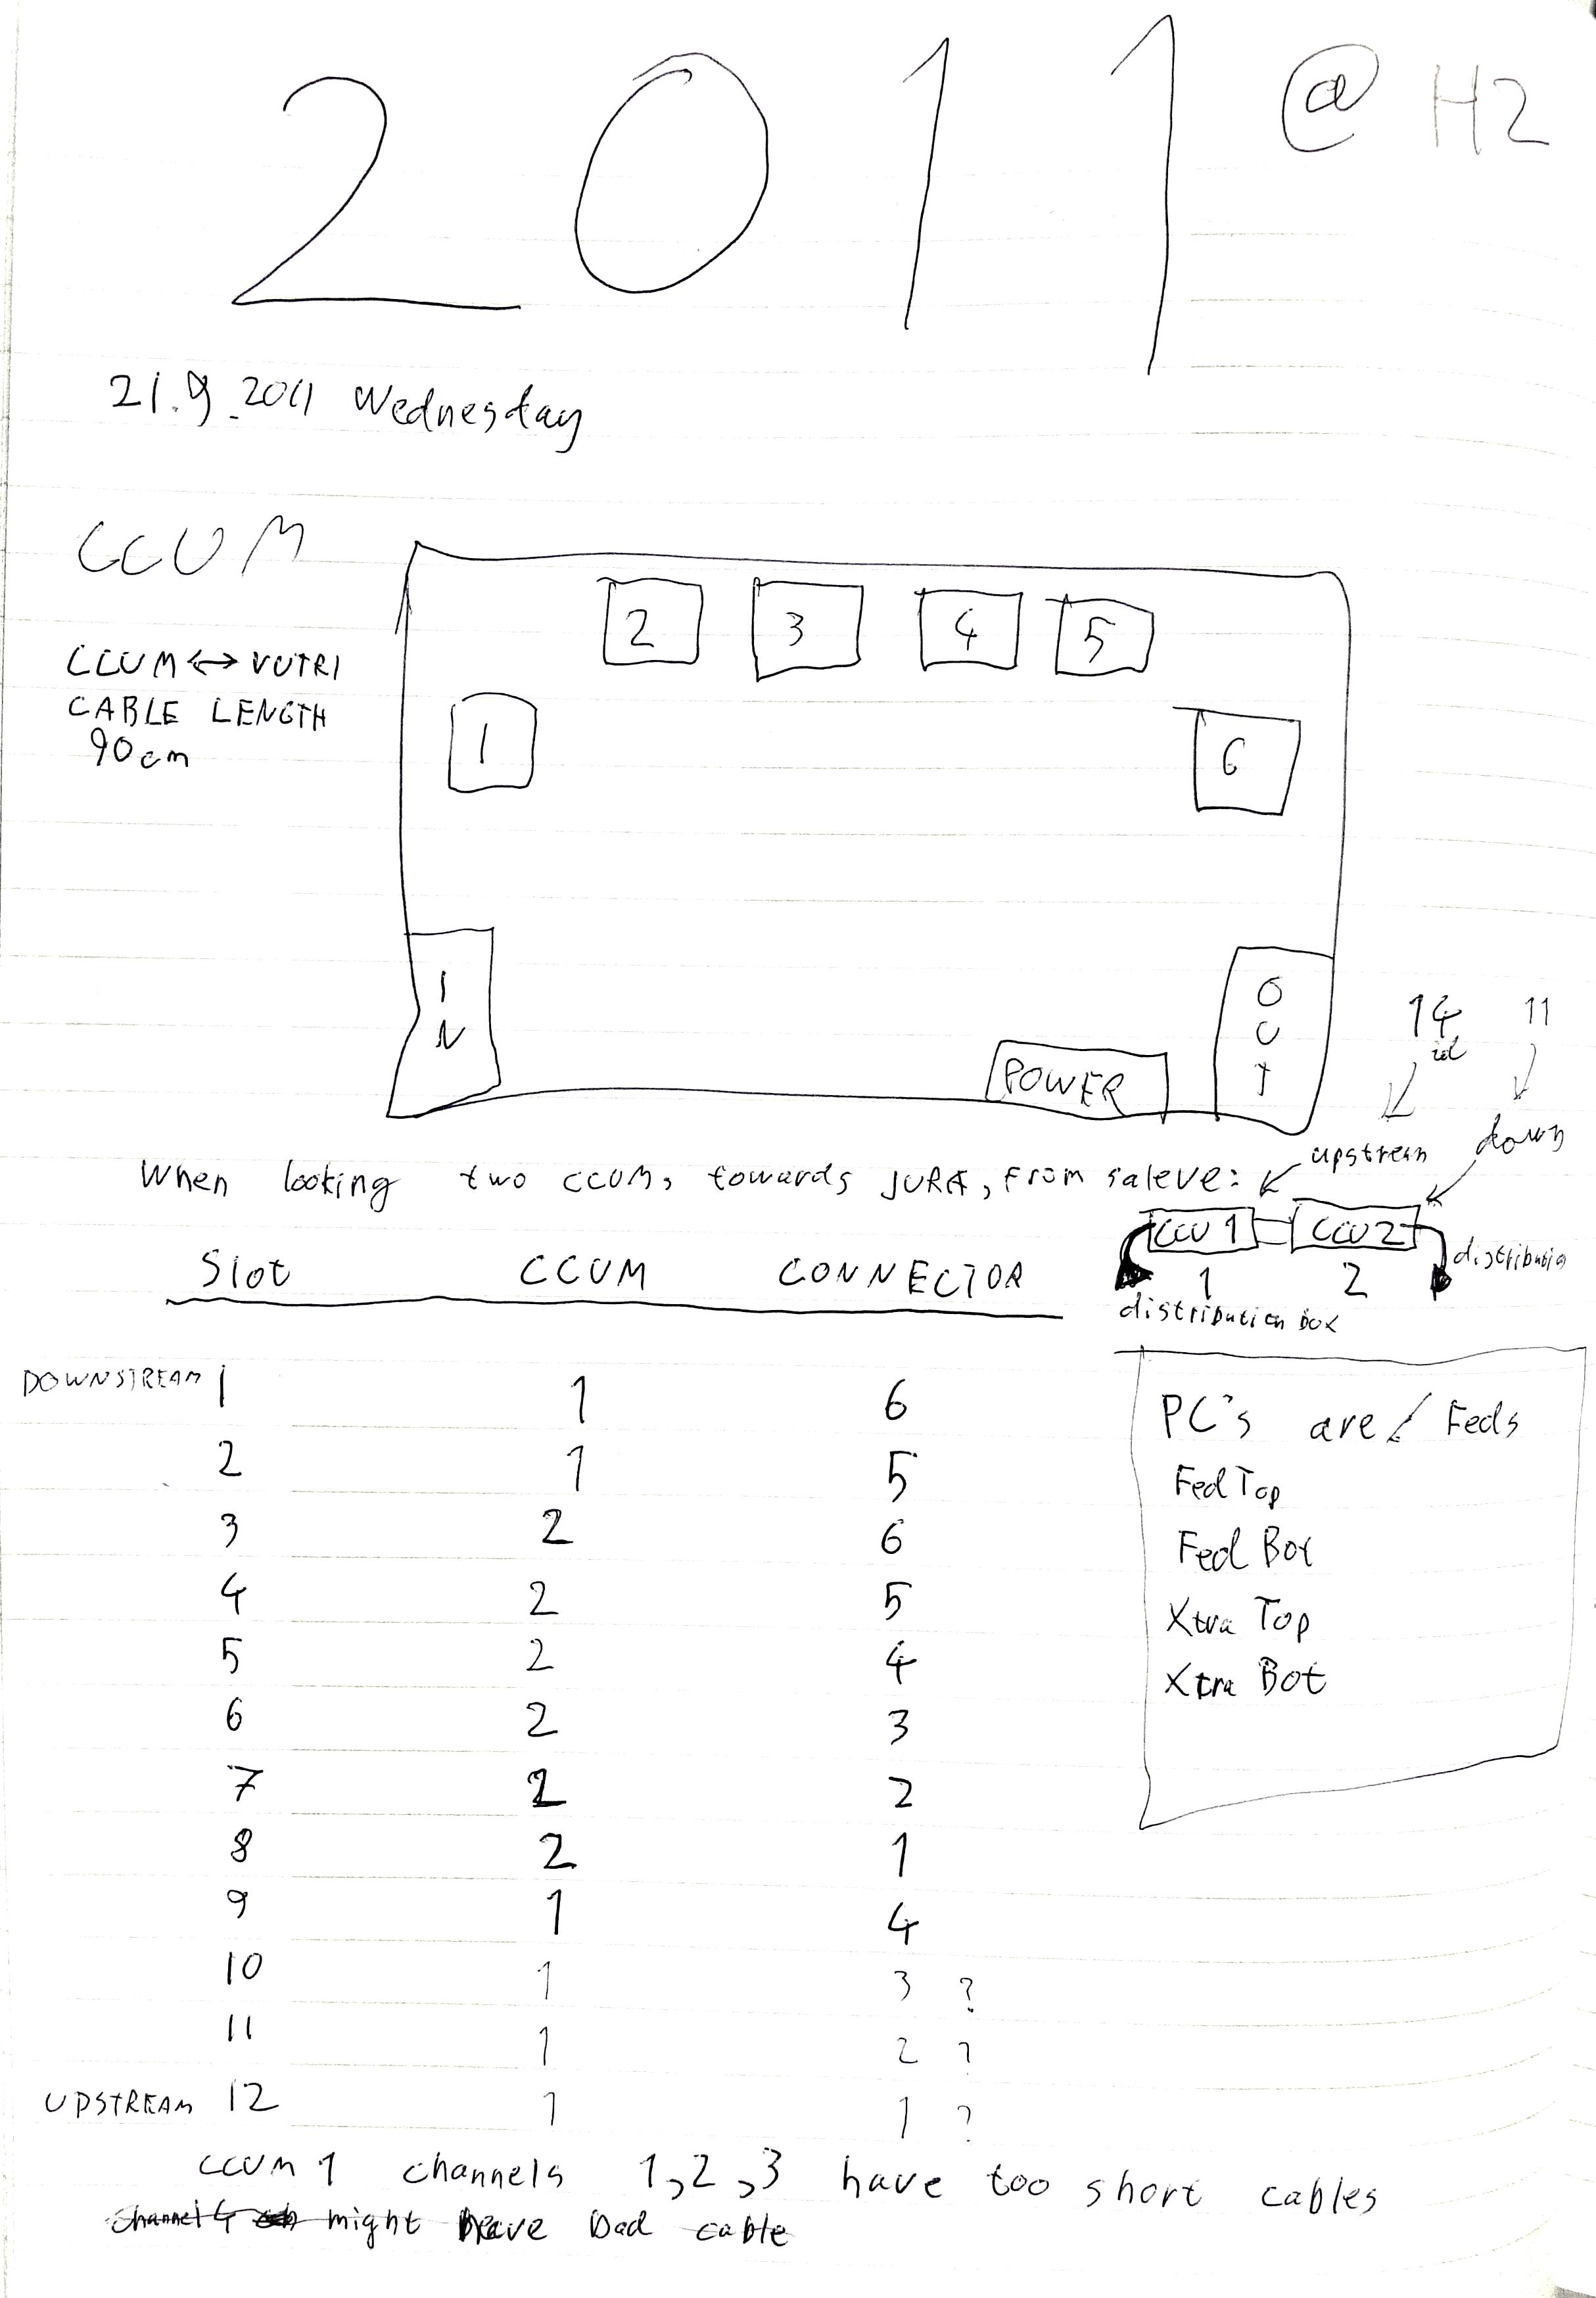 2011 @ H2
21.9.2011 Wednesday
CCUM
CCUM ↔ VUTRI
CABLE LENGTH
90cm
2 3 4 5
1 6
IN
OUT
POWER
14 11
upstream down
When looking two CCUMs towards JURA, from saleve:
CCU 1 CCU 2
1 2
distribution box
Slot CCUM CONNECTOR
DOWNSTREAM 1 1 6
2 1 5
3 2 6
4 2 5
5 2 4
6 2 3
7 2 2
8 2 1
9 1 4
10 1 3 ?
11 1 2 ?
UPSTREAM 12 1 1 ?
PC's are / Feds
Fed Top
Fed Bot
Xtra Top
Xtra Bot
CCUM 1 channels 1,2,3 have too short cables
channel 4 might have bad cable